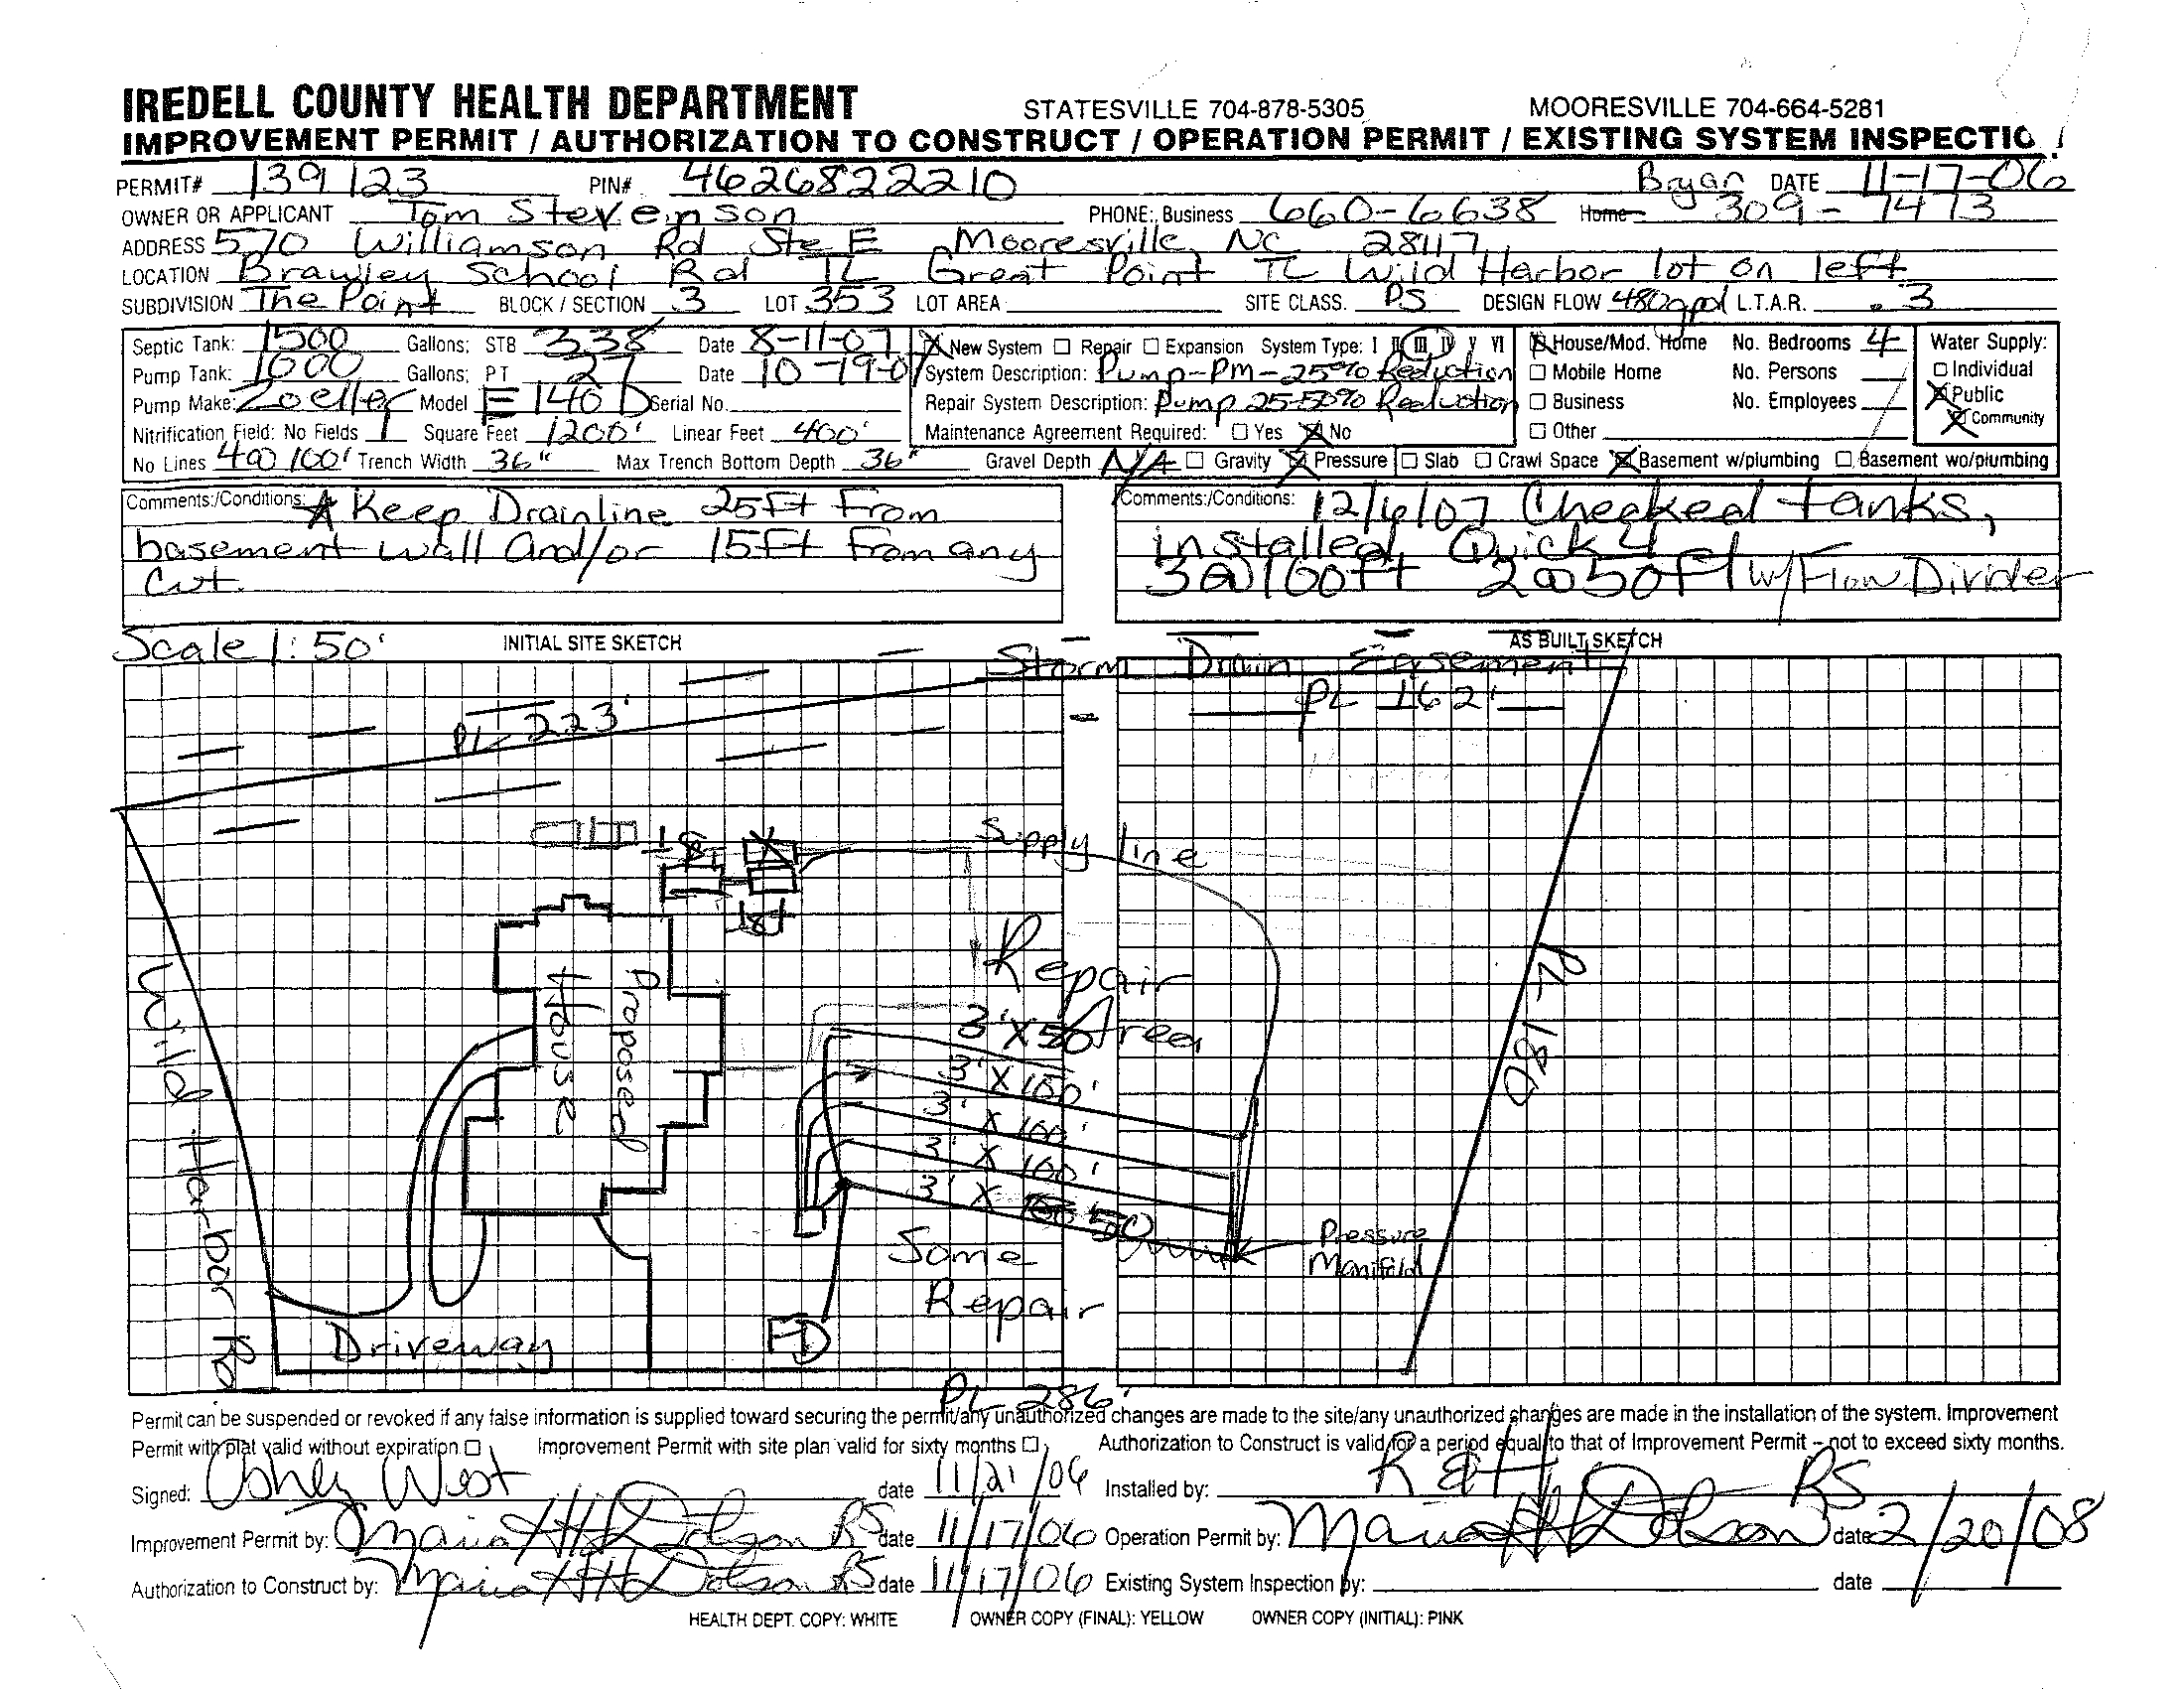 IREDELL COUNTY HEALTH DEPARTMENT STATESVILLE 704-878-5305 MOORESVILLE 704-664-5281
IMPROVEMENT PERMIT / AUTHORIZATION TO CONSTRUCT / OPERATION PERMIT / EXISTING SYSTEM INSPECTIO
PERMIT# 139123 PIN# 4626822210 Bryan DATE 11-17-06
OWNER OR APPLICANT Tom Stevenson PHONE: Business 660-6638 Home 309-7473
ADDRESS 570 Williamson Rd Ste E Mooresville, NC 28117
LOCATION Brawley School Rd TL Great Point TL Wild Harbor lot on left
SUBDIVISION The Point BLOCK / SECTION 3 LOT 353 LOT AREA SITE CLASS. PS DESIGN FLOW 480gpd L.T.A.R. .3
Septic Tank: 1500 Gallons; STB 338 Date 8-11-07 New System Repair Expansion System Type: I II III IV V VI House/Mod. Home No. Bedrooms 4 Water Supply:
Pump Tank: 1000 Gallons; PT 27 Date 10-19-07 System Description: Pump-PM-25% Reduction Mobile Home No. Persons Individual
Pump Make: Zoeller Model E140 Serial No. Repair System Description: Pump 25-50% Reduction Business No. Employees Public
Nitrification Field: No Fields 1 Square Feet 1200' Linear Feet 400' Maintenance Agreement Required: Yes No Other Community
No Lines 4@100' Trench Width 36" Max Trench Bottom Depth 36" Gravel Depth N/A Gravity Pressure Slab Crawl Space Basement w/plumbing Basement wo/plumbing
Comments:/Conditions: Keep Drainline 25ft From
basement wall and/or 15ft from any
cut.
Comments:/Conditions: 12/6/07 Checked tanks,
installed Quick 4
3@100ft 2@50ft w/Flow Divider
Scale 1:50' INITIAL SITE SKETCH AS BUILT SKETCH
Storm Drain Easement
PL 223'
PL 162'
Supply line
Repair
Area
3' X 50
3' X 100'
3' X 100'
3' X 100'
3' X 50
Proposed
House
Wild Harbor Rd
PL 180
Pressure
Manifold
Some
Repair
FD
Driveway
PL 286'
Permit can be suspended or revoked if any false information is supplied toward securing the permit/any unauthorized changes are made to the site/any unauthorized changes are made in the installation of the system. Improvement
Permit with plat valid without expiration. Improvement Permit with site plan valid for sixty months Authorization to Construct is valid for a period equal to that of Improvement Permit – not to exceed sixty months.
Signed: Ashley West date 11/21/06 Installed by: R & H
Improvement Permit by: Maria H Dotson RS date 11/17/06 Operation Permit by: Maria H Dotson RS date 2/20/08
Authorization to Construct by: Maria H Dotson RS date 11/17/06 Existing System Inspection by: date
HEALTH DEPT. COPY: WHITE OWNER COPY (FINAL): YELLOW OWNER COPY (INITIAL): PINK